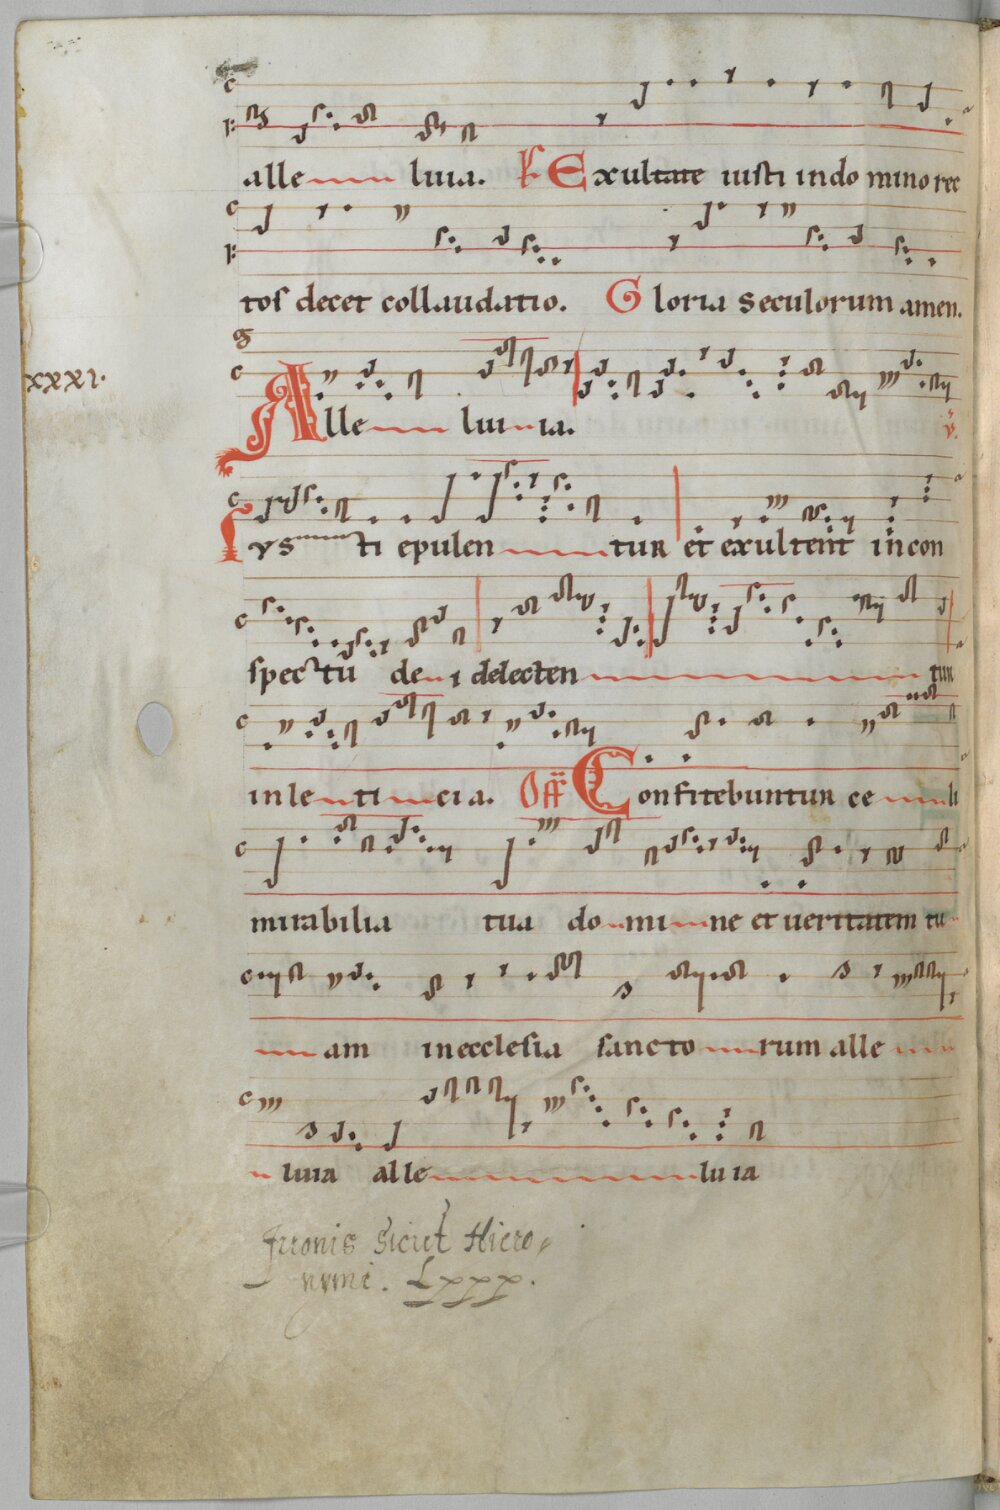 alle luia. Ps Exultate iusti indo mino rec
tos decet collaudatio. Gloria seculorum amen.
xxxi.
Alle lui ia. V.
Iusti epulen tur et exultent incon
spectu de i delecten tur
inle ti cia. Off Confitebuntur ce li
mirabilia tua do mi ne et ueritatem tu
am inecclesia sancto rum alle
luia alle luia
Ironis Sicut Hiero,
nymi. Lxxx.